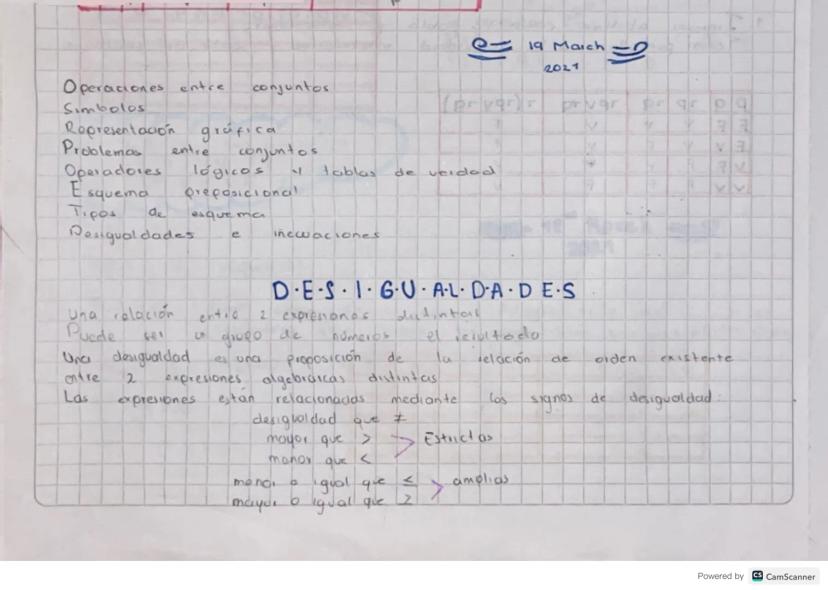 19 March
2021
Operaciones entre conjuntos
Simbolos
Representación gráfica
Problemas entre conjuntos
Operadores lógicos y tablas de verdad
Esquema preposicional
Tipos de esquema
Desigualdades e inecuaciones
D·E·S·I·G·U·A·L·D·A·D E·S
Una relación entre 2 expresiones distintas
Puede ser un grupo de números el resultado
Una desigualdad es una proposición de la relación de orden existente
entre 2 expresiones algebráicas distintas
Las expresiones están relacionadas mediante los signos de desigualdad:
desigualdad que ≠
mayor que > Estrictas
menor que <
menor o igual que ≤ amplias
mayor o igual que ≥
Powered by CS CamScanner